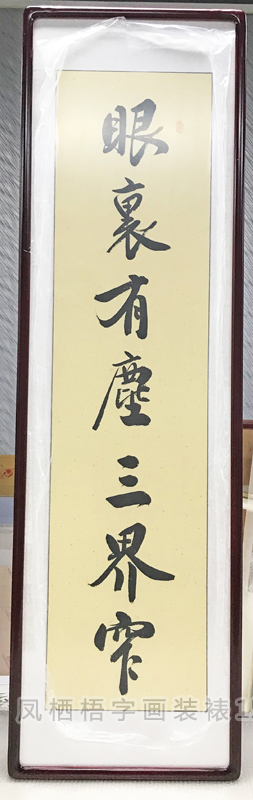 眼裏有塵三界窄
凤栖梧字画装裱